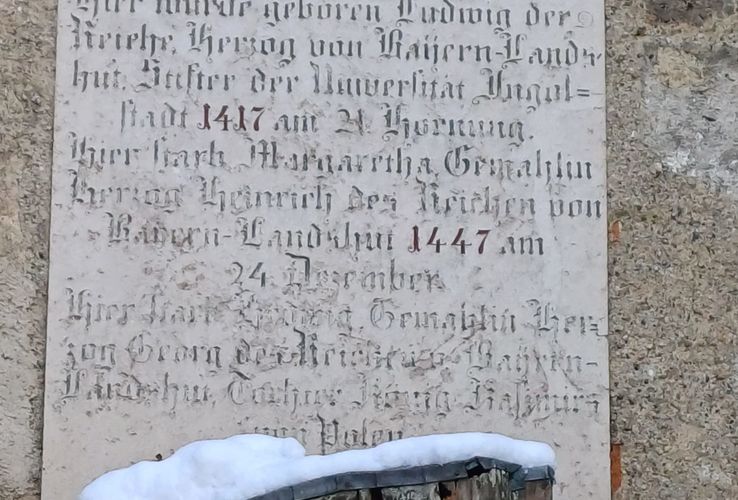 Hier wurde geboren Ludwig der
Reiche, Herzog von Bayern-Lands-
hut, Stifter der Universität Ingol=
stadt 1417 am 21. Hornung.
Hier starb Margaretha, Gemahlin
Herzog Heinrich des Reichen von
Bayern-Landshut 1447 am
24. Dezember.
Hier starb Hedwig, Gemahlin Her-
zog Georg des Reichen v. Bayern-
Landshut, Tochter König Kasimirs
von Polen